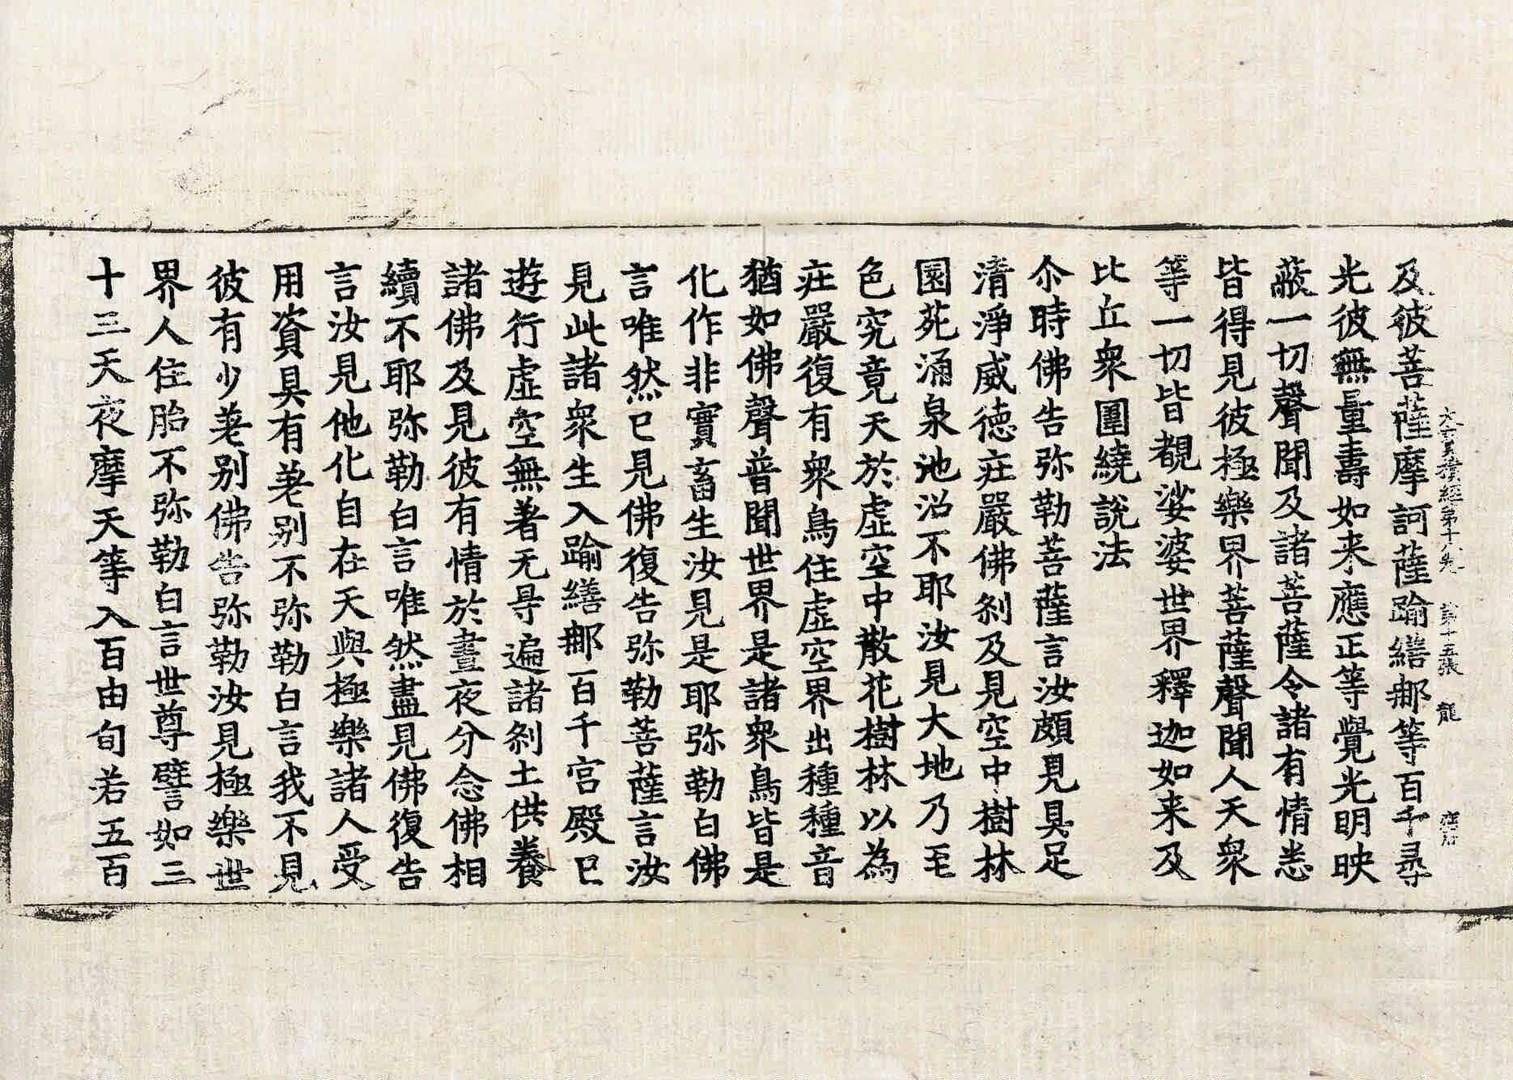 大寶積經第十八卷 第十五張 龍
及彼菩薩摩訶薩踰繕那等百千尋
光彼無量壽如来應正等覺光明映
蔽一切聲聞及諸菩薩令諸有情悉
皆得見彼極樂界菩薩聲聞人天衆
等一切皆覩娑婆世界釋迦如来及
比丘衆圍繞說法
尒時佛告弥勒菩薩言汝頗見具足
清淨威德庄嚴佛刹及見空中樹林
園苑涌泉池沼不耶汝見大地乃至
色究竟天於虛空中散花樹林以為
庄嚴復有衆鳥住虛空界出種種音
猶如佛聲普聞世界是諸衆鳥皆是
化作非實畜生汝見是耶弥勒白佛
言唯然已見佛復告弥勒菩薩言汝
見此諸衆生入踰繕那百千宮殿已
遊行虛空無著无㝵遍諸刹土供養
諸佛及見彼有情於晝夜分念佛相
續不耶弥勒白言唯然盡見佛復告
言汝見他化自在天與極樂諸人受
用資具有差别不弥勒白言我不見
彼有少差别佛告弥勒汝見極樂世
界人住胎不弥勒白言世尊譬如三
十三天夜摩天等入百由旬若五百